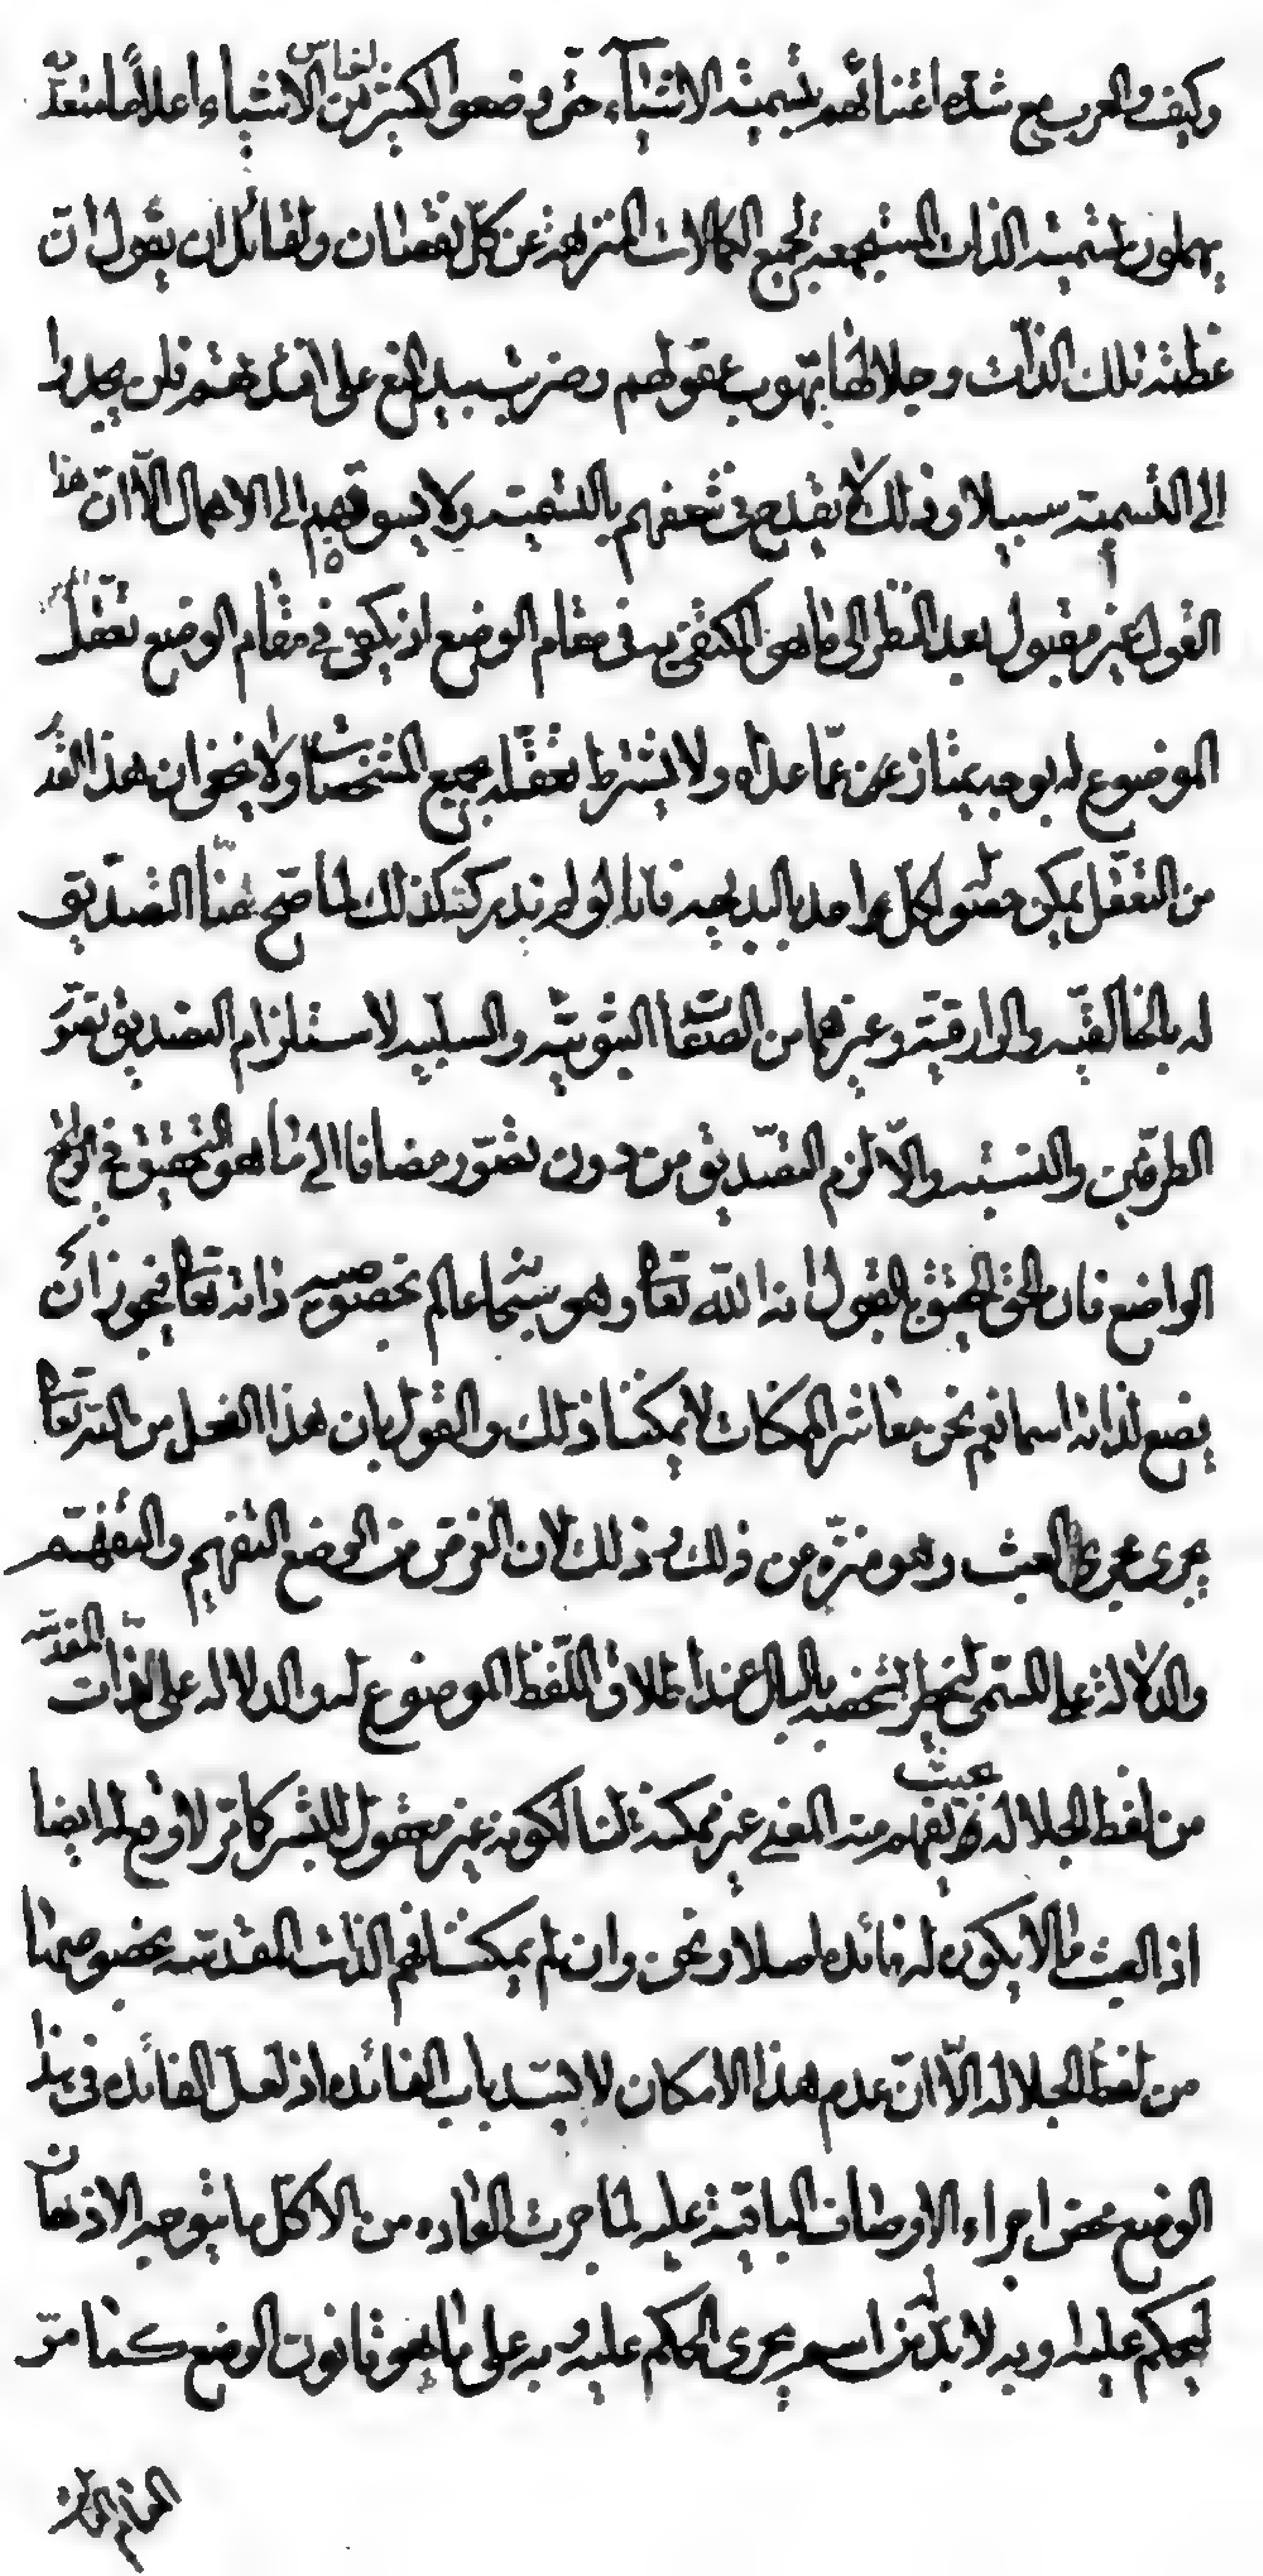 وكيف والعرب مع شدة اعتنائهم بتسمية الاشياء حتى وضعوا لكثير من الاشياء اعلاما متعدّ
يهملون تسمية الذات المستجمعة لجميع الكمالات المنزهة عن كلّ نقصان ولقائل ان يقول انّ
عظمة تلك الذات وجلالتها بهرت عقولهم وضربت بيد المنع على افئدتهم فلن يجدوا
الى التسمية سبيلا وذلك لا يقدح في شغفهم بالتسمية ولا يسوقهم الى الاهمال الّا انّ هذا
القول غير مقبول بعد النظر الى ما هو المكتفى به في مقام الوضع اذ يكفى في مقام الوضع تعقّل
الموضوع له بوجه يمتاز عن عمّا عداه ولا يشترط تعقّله بجميع المشخصات ولا يخفى ان هذا القدر
من التعقّل يمكن حصوله لكلّ واحد بالبديهه فانا لو لم ندركه كذلك لما صحّ عنّا التصديق
له بالخالقيه والرازقية وغيرهما من الصفات الثبوتيه والسلبيه لاستلزام التصديق تصوّر
الطرفين والنسبه والّا لزم التصديق من دون تصّور مضافا الى ما هو التحقيق في
الواضع فان الحق الحقيق بالقبول انه الله تعالى وهو سبحانه عالم بخصوصيه ذاته تعالى فيجوز ان
يضع لذاته اسما نعم نحن معاشر الممكنات لا يمكننا ذلك والقول بان هذا الفعل من الله تعالى
يجرى مجرى العبث وهو منزّه عن ذلك وذلك لان الغرض من الوضع التفهيم والتفهّم
والدلالة على المسمّى ليخطر بشخصه بالبال عند اطلاق اللّفظ الموضوع له والدلاله على الذات المقدّسه
من لفظ الجلاله بحيث يفهم منه المعنى غير ممكنة لنا لكونه غير معقول للبشر كما مرّ لا وقع له ايضا
اذ العبث ما لا يكون له فائده اصلا ونحن وان لم يمكننا فهم الذات المقدسه بخصوصها
من لفظ الجلاله الّا انّ عدم هذا الامكان لا يسدّ باب الفائده اذ لعلّ الفائده في هذا
الوضع محض اجراء الاوصاف الباقية عليه لما جرت العاده من ان كلّ ما يتوجه الاذهان
ليحكم عليه وبه لا بدّ له من اسم يجرى الحكم عليه وبه على ما هو قانون الوضع كما مرّ